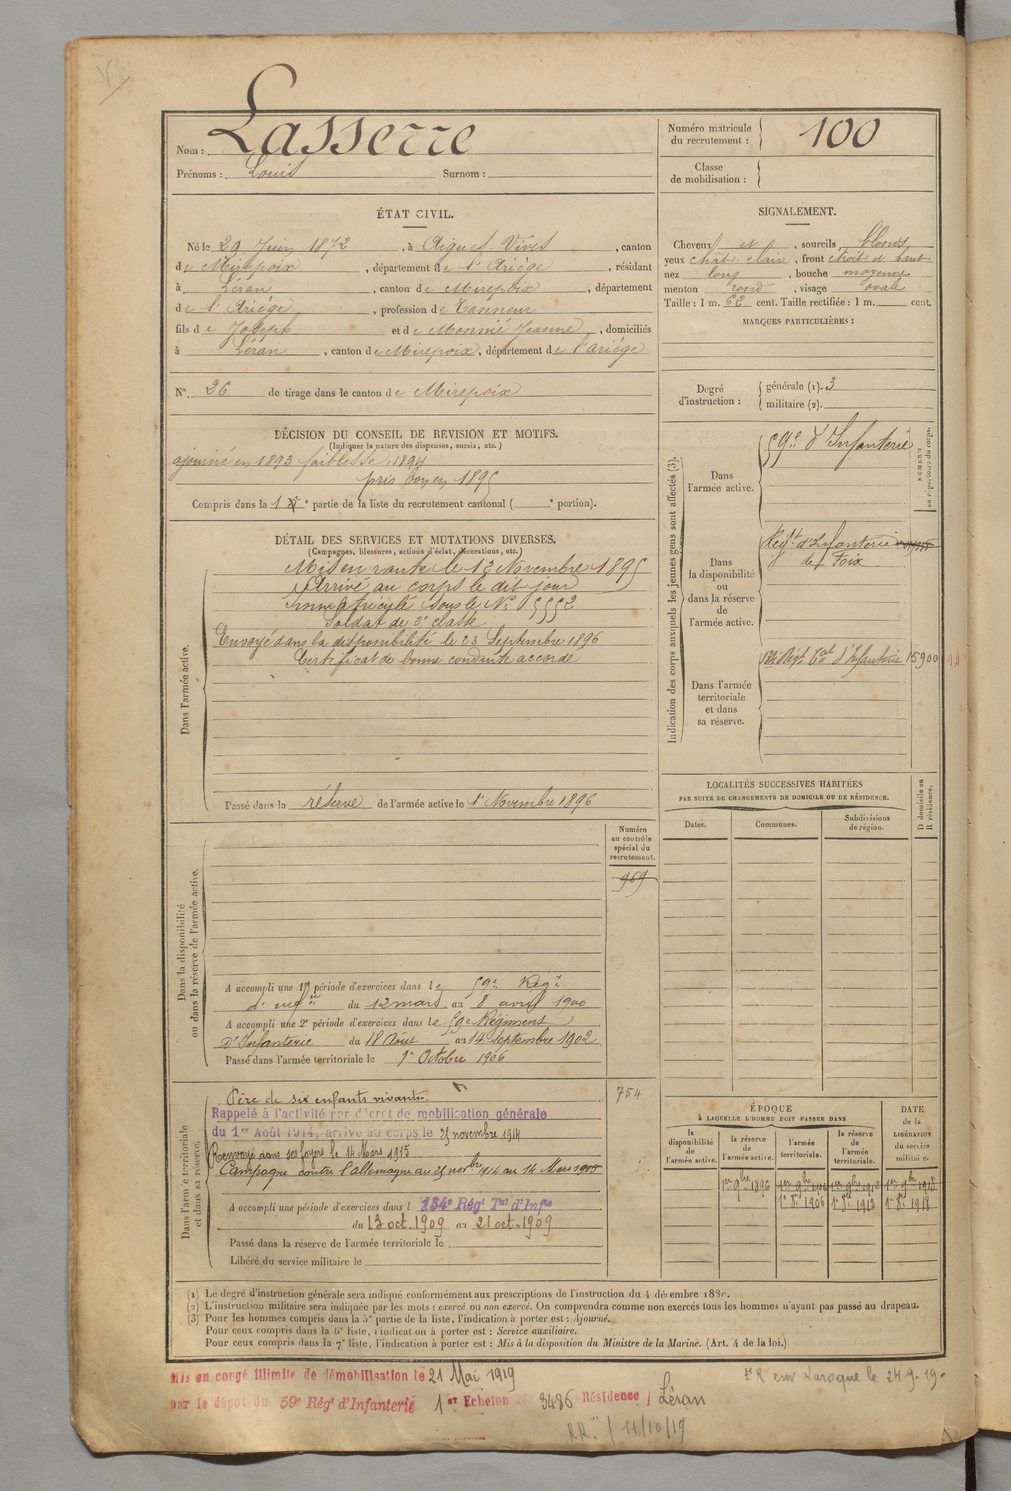 Nom : Lasserre
Prénoms : Louis Surnom :
Numéro matricule
du recrutement : 100
Classe
de mobilisation :
ÉTAT CIVIL.
Né le 29 Juin 1872, à Aigues-Vives, canton
de Mirepoix, département de l'Ariège, résidant
à Léran, canton de Mirepoix, département
de l'Ariège, profession de Tanneur
fils de Joseph et de Monnié Jeanne, domiciliés
à Léran, canton de Mirepoix, département de l'ariège
N° 26 de tirage dans le canton de Mirepoix
SIGNALEMENT.
Cheveux et, sourcils blonds
yeux chât. clair, front étroit et haut
nez long, bouche moyenne
menton rond, visage ovale
Taille : 1 m. 62 cent. Taille rectifiée : 1 m. cent.
MARQUES PARTICULIÈRES :
Degré
d'instruction :
générale (1). 3
militaire (2).
DÉCISION DU CONSEIL DE REVISION ET MOTIFS.
(Indiquer la nature des dispenses, sursis, etc.)
ajourné en 1893 faiblesse, 1894
pris bon en 1895
Compris dans la 1e partie de la liste du recrutement cantonal ( e portion).
DÉTAIL DES SERVICES ET MUTATIONS DIVERSES.
(Campagnes, blessures, actions d'éclat, décorations, etc.)
Dans l'armée active.
Mis en route le 13 Novembre 1895
Arrivé au corps le dit jour
immatriculé sous le N° 5552
Soldat de 2e classe
Envoyé dans la disponibilité le 23 Septembre 1896
Certificat de bonne conduite accordé
Passé dans la réserve de l'armée active le 1er Novembre 1896
Indication des corps auxquels les jeunes gens sont affectés (3).
NUMÉRO
au répertoire du corps.
Dans
l'armée active.
59e d'Infanterie
Dans
la disponibilité
ou
dans la réserve
de
l'armée active.
Régt d'Infanterie
de Foix
Dans l'armée
territoriale
et dans
sa réserve.
Régt Tal d'Infanterie 15900
LOCALITÉS SUCCESSIVES HABITÉES
PAR SUITE DE CHANGEMENTS DE DOMICILE OU DE RÉSIDENCE.
Dates.
Communes.
Subdivisions
de région.
D domicile ou
R résidence.
Numéro
au contrôle
spécial du
recrutement.
969
Dans la disponibilité
ou dans la réserve de l'armée active.
A accompli une 1re période d'exercices dans le 59e Régt
d'infie du 12 mars au 8 avril 1900
A accompli une 2e période d'exercices dans le 59e Régiment
d'Infanterie du 18 Août au 14 Septembre 1902
Passé dans l'armée territoriale le 1er Octobre 1906
754
Dans l'armée territoriale
et dans sa réserve.
Père de six enfants vivants.
Rappelé à l'activité par décret de mobilisation générale
du 1er Août 1914, arrivé au corps le 25 novembre 1914
Renvoyé dans ses foyers le 14 Mars 1915
Campagne contre l'allemagne du 25 novbre 1914 au 14 Mars 1915
A accompli une période d'exercices dans l 134e Régt Tal d'Infie
du 13 oct. 1909 au 21 oct. 1909
Passé dans la réserve de l'armée territoriale le
Libéré du service militaire le
ÉPOQUE
À LAQUELLE L'HOMME DOIT PASSER DANS
DATE
de la
LIBÉRATION
du service
militaire.
la
disponibilité
de
l'armée active.
la réserve
de
l'armée active.
l'armée
territoriale.
la réserve
de
l'armée
territoriale.
1er 9bre 1896 1er 9bre 1906 1er 9bre 1912 1er 9bre 1918
1er 8bre 1906 1er 8bre 1912 1er 8bre 1918
(1) Le degré d'instruction générale sera indiqué conformément aux prescriptions de l'instruction du 4 décembre 1889.
(2) L'instruction militaire sera indiquée par les mots : exercé ou non exercé. On comprendra comme non exercés tous les hommes n'ayant pas passé au drapeau.
(3) Pour les hommes compris dans la 5e partie de la liste, l'indication à porter est : Ajourné.
Pour ceux compris dans la 6e liste, l'indication à porter est : Service auxiliaire.
Pour ceux compris dans la 7e liste, l'indication à porter est : Mis à la disposition du Ministre de la Marine. (Art. 4 de la loi.)
Mis en congé illimité de démobilisation le 21 Mai 1919
par le dépôt du 59e Régt d'Infanterie 1er Echelon N° 3486 Résidence Léran
Laroque le 24-9-19-
R.R. 11/10/19